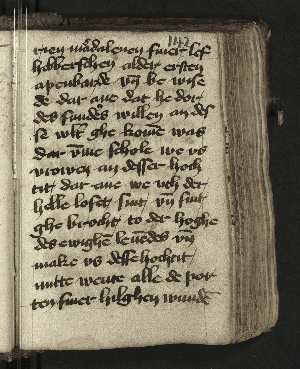 142
rien mādalenen siner lef
hebberschen alder ersten
apenbarde vn̄ be wise
de dar aue dat he dor
des sunders willen an des
se wlt ghe kome was
dar v̄me schole we vs
vrowen an desser hoch
tit dar aue we vth der
helle loset sint vn̄ sint
ghe brocht to der hoghe
des ewighe leuēdes vn̄
make vs desse hochtit
nutte wente alle de por
ten siner hilghen wunde